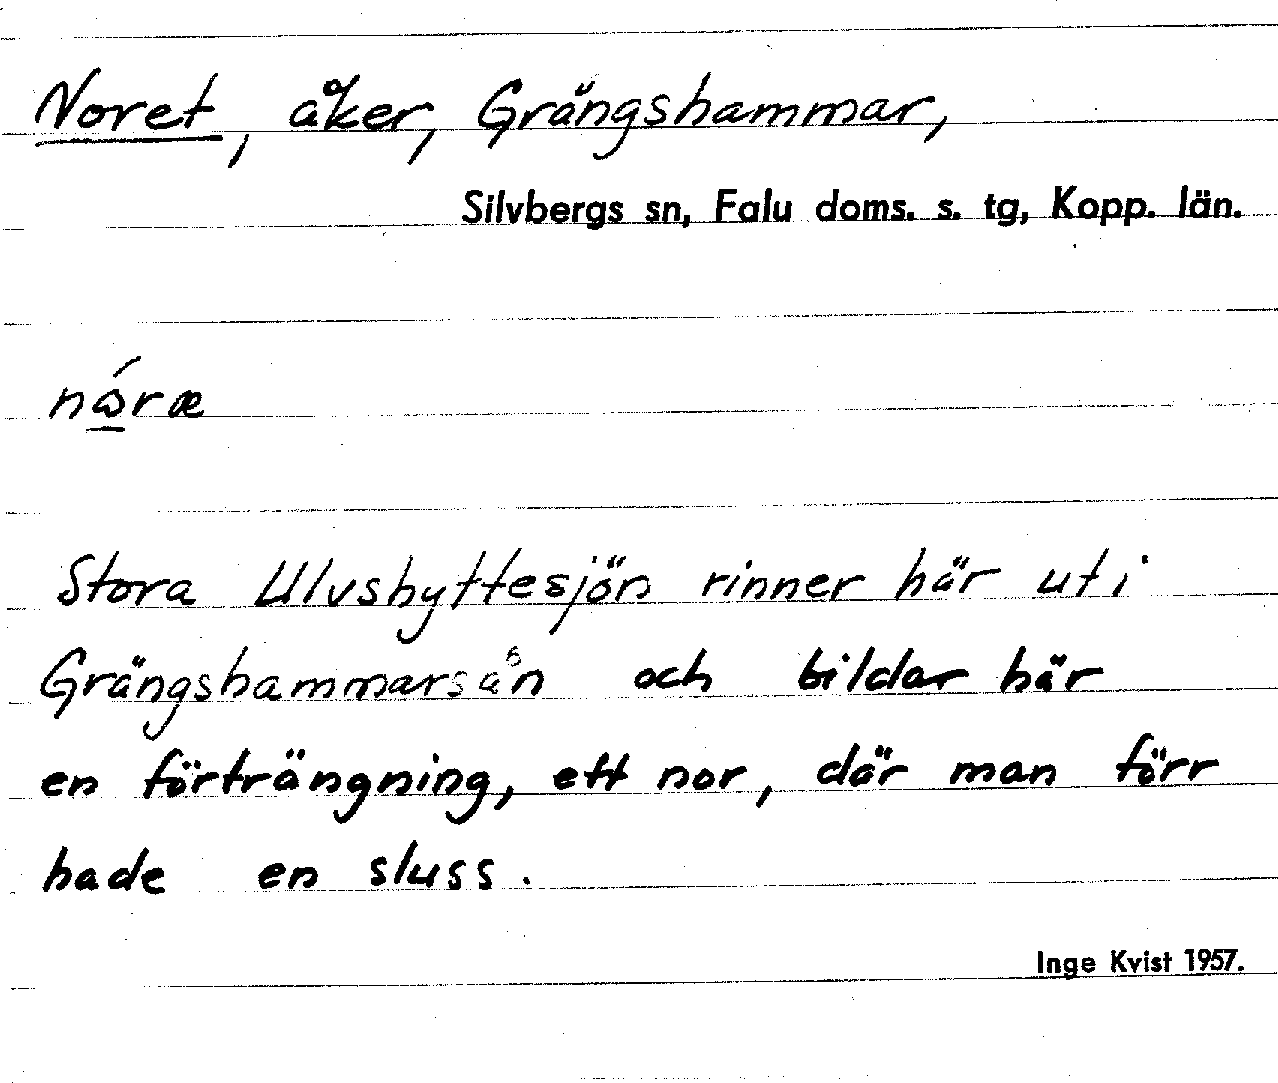 Noret, åker, Grängshammar,
Silvbergs sn, Falu doms. s. tg, Kopp. län.
nώ̲ræ
Stora Ulvshyttesjön rinner här ut i
Grängshammarsån och bildar här
en förträngning, ett nor, där man förr
hade en sluss.
Inge Kvist 1957.